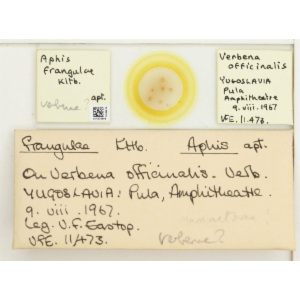 Aphis
frangulae
Kltb.
apt.
verbenae
Verbena
officinalis
YUGOSLAVIA
Pula
Amphitheatre
9.viii.1967
VFE. 11473.
frangulae Kltb. Aphis apt.
On Verbena officinalis. Verb.
YUGOSLAVIA: Pula, Amphitheatre.
9. viii .1967.
Leg. V.F. Eastop.
VFE. 11/473.
verbenae?